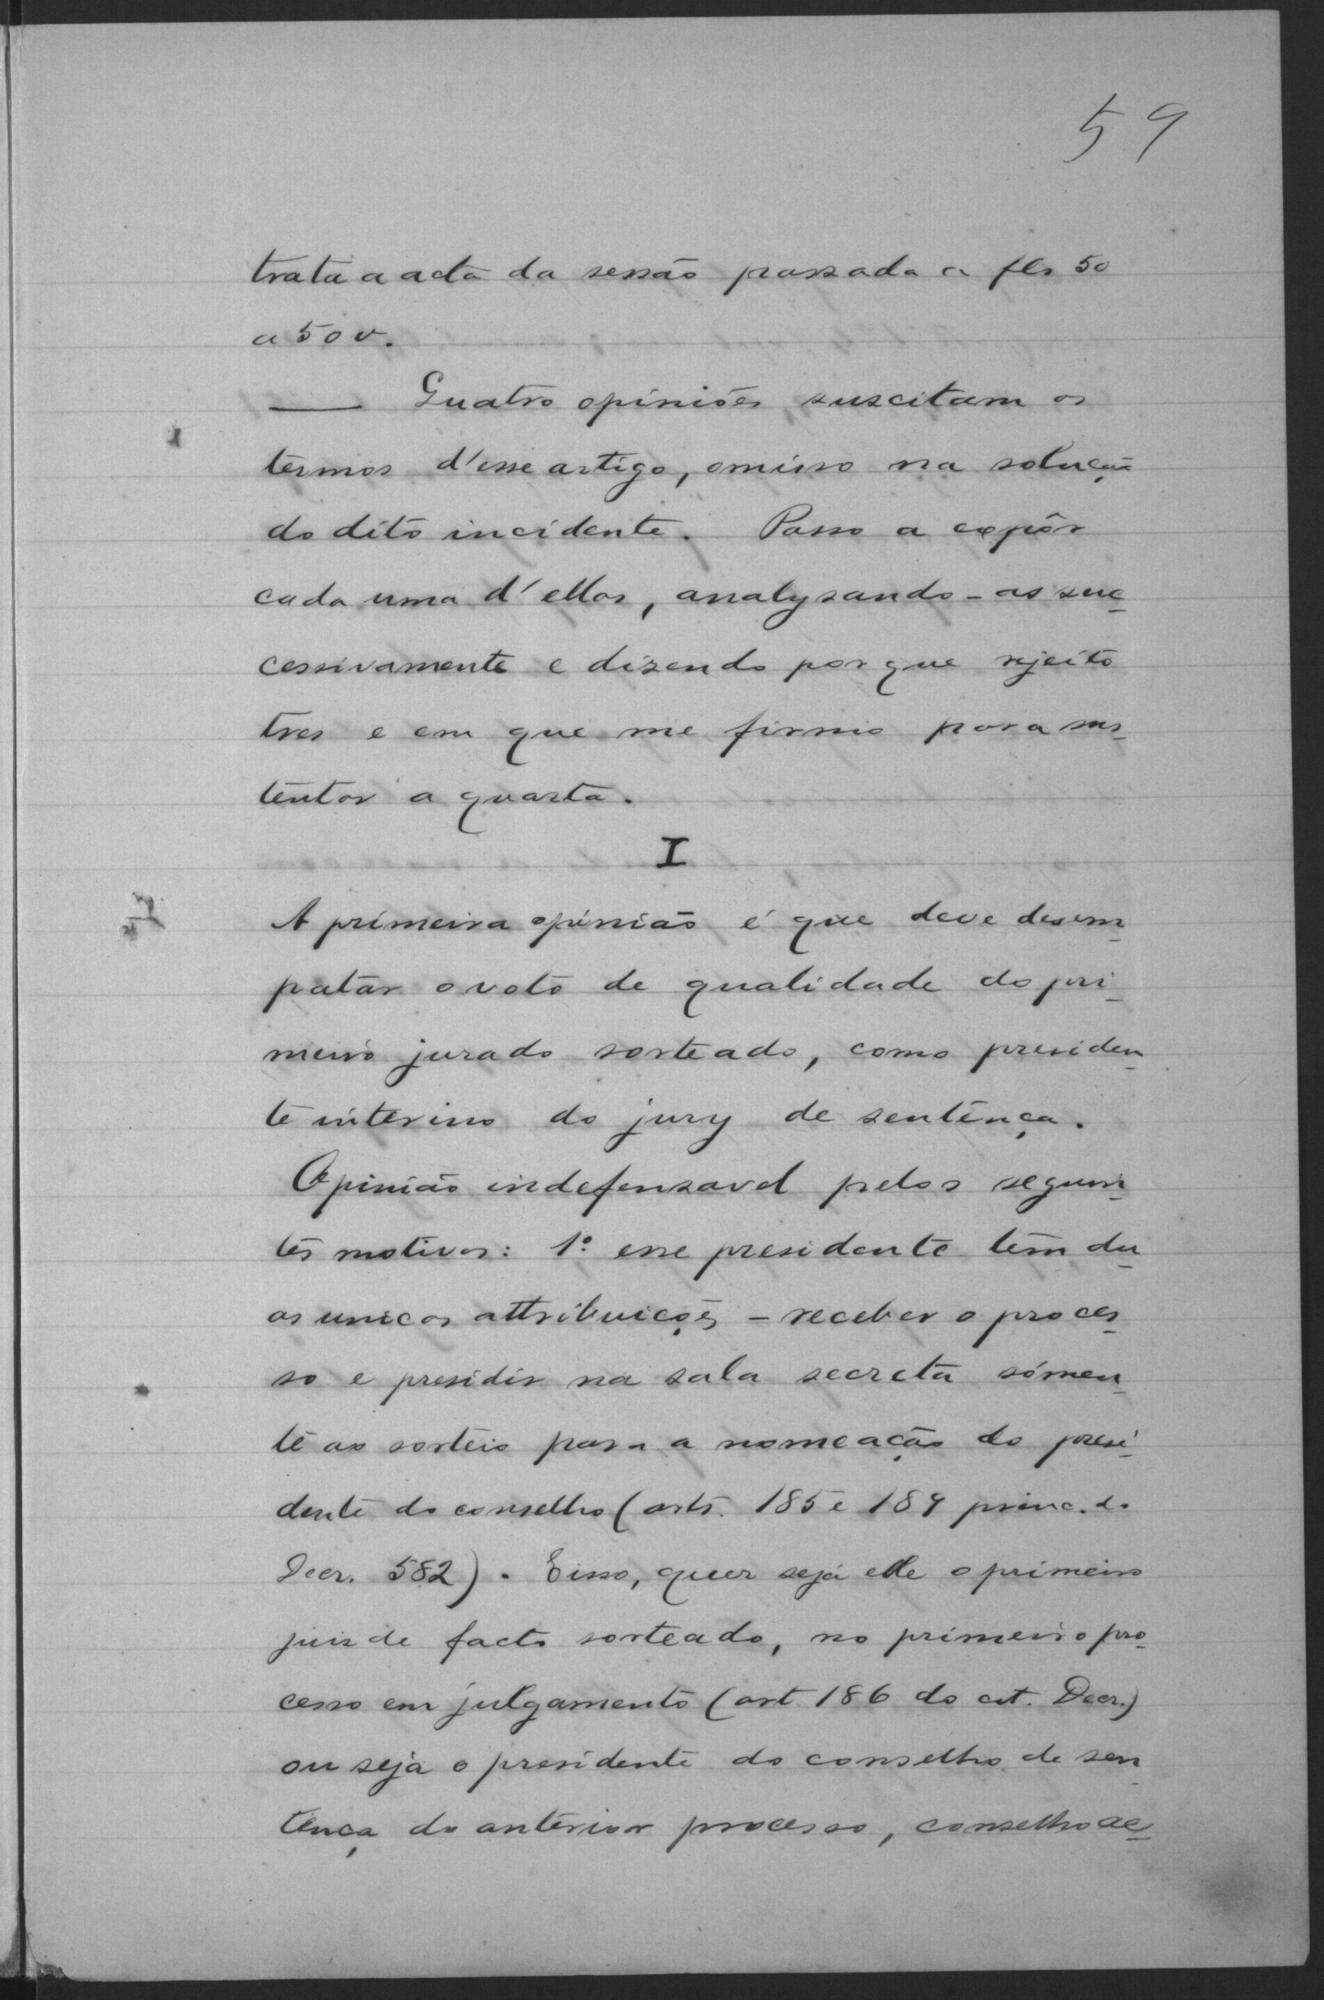 59
trata a acta da sessão passada a fls 50
a 50 v.
—— Quatro opiniões suscitam os
termos d'esse artigo, omisso na solução
do dito incidente. Passo a expôr
cada uma d'ellas, analysando-as suc-
cessivamente e dizendo por que rejeito
tres e em que me firmo para sus-
tentar a quarta.
I
A primeira opinião é que deve desem-
patar o voto de qualidade do pri-
meiro jurado sorteado, como presiden-
te interino do jury de sentença.
Opinião indefensavel pelos seguin-
tes motivos: 1º esse presidente tem du-
as unicas attribuições – receber o proces-
so e presidir na sala secreta sómen-
te ao sorteio para a nomeação do presi-
dente do conselho (arts. 185 e 189 princ. do
Decr. 582). E isso, quer seja elle o primeiro
juiz de facto sorteado, no primeiro pro-
cesso em julgamento (art 186 do cit. Decr.)
ou seja o presidente do conselho de sen-
tença do anterior processo, conselho ac-